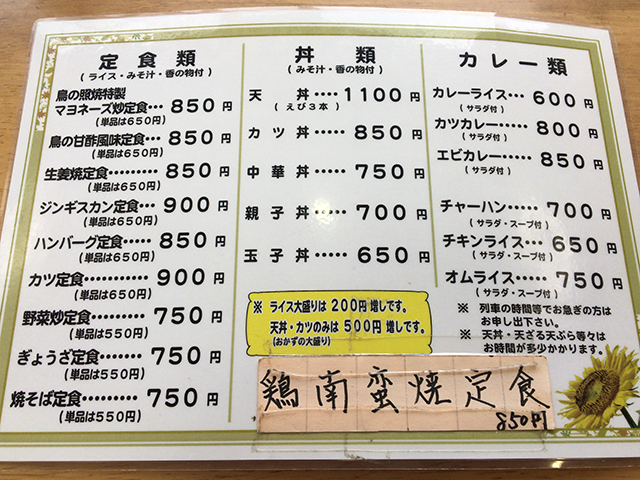 定食類
(ライス・みそ汁・香の物付)
鳥の照焼特製
マヨネーズ炒定食… 850円
(単品は650円)
鳥の甘酢風味定食… 850円
(単品は650円)
生姜焼定食……… 850円
(単品は650円)
ジンギスカン定食… 900円
(単品は650円)
ハンバーグ定食…… 850円
(単品は650円)
カツ定食………… 900円
(単品は650円)
野菜炒定食……… 750円
(単品は550円)
ぎょうざ定食…… 750円
(単品は550円)
焼そば定食……… 750円
(単品は550円)
丼類
(みそ汁・香の物付)
天丼…‥1100円
(えび3本)
カツ丼…‥850円
中華丼…‥750円
親子丼…‥700円
玉子丼…‥650円
※ ライス大盛りは 200円 増しです。
天丼・カツのみは 500円 増しです。
(おかずの大盛り)
鶏南蛮焼定食
850円
カレー類
カレーライス… 600円
(サラダ付)
カツカレー…… 800円
(サラダ付)
エビカレー…… 850円
(サラダ付)
チャーハン…… 700円
(サラダ・スープ付)
チキンライス… 650円
(サラダ・スープ付)
オムライス…… 750円
(サラダ・スープ付)
※ 列車の時間等でお急ぎの方は
お申し出下さい。
※ 天丼・天ざる天ぷら等々は
お時間が多少かかります。